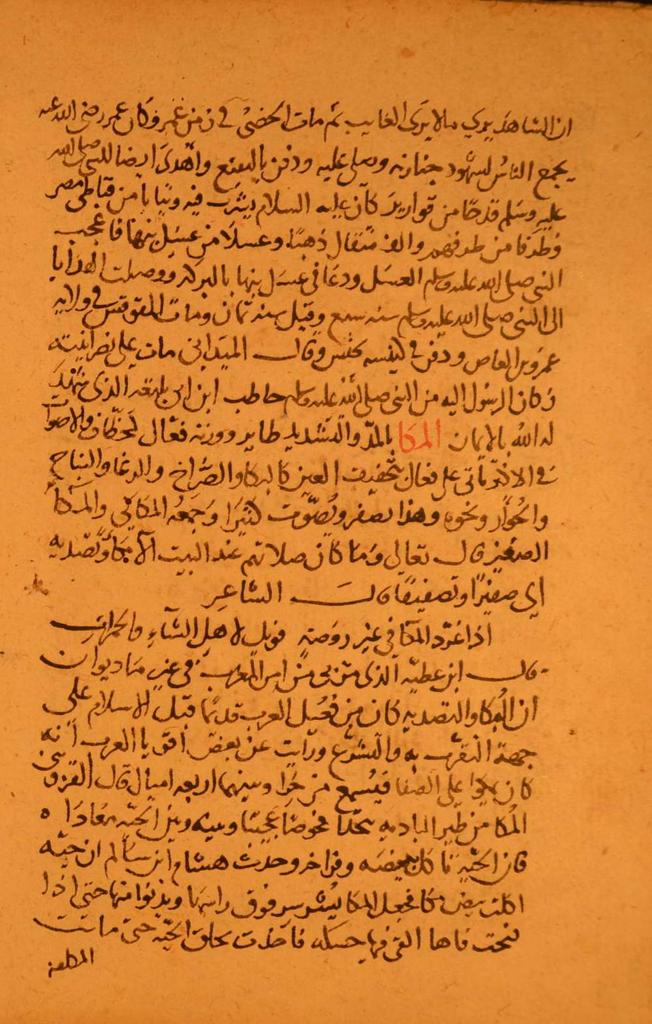 ان الشاهد يرى مالا يرى الغايب ثم مات الخصى في زمن عمر وكان عمر رضى الله عنه
يجمع الناس لشهود جنازته وصلى عليه ودفن بالبقيع واهدى ايضا للنبى صلى الله
عليه وسلم قدحا من قوارير كان عليه السلام يشرب فيه وثيابا من قباطى مصر
وطرفا من طرفهم والف مثقال ذهبا وعسلا من عسل بنها فاعجب
النبى صلى الله عليه وسلم العسل ودعا فى عسل بنها بالبركه ووصلت الهدايا
الى النبى صلى الله عليه وسلم سنه سبع وقيل سنه ثمان ومات المقوقس فى ولايه
عمرو بن العاص ودفن فى كنيسه وقال الميدانى مات على نصرانيته
وكان الرسول اليه من النبى صلى الله عليه وسلم حاطب ابن ابى بلتعه الذى شهد
له الله بالايمان المكا بالمد والتشديد طاير ووزنه فعال كخطاف والاصوات
فى الاكثر تاتى على فعال بتخفيف العين كالبكا والصراخ والرغا والنباح
والخوار ونحوه وهذا يصفر ويصوت كثيرا وجمعه المكاكى والمكا
الصفير قال تعالى وما كان صلاتهم عند البيت الا مكاء وتصديه
اى صفيرا وتصفيقا قال الشاعر
اذا غرد المكا فى غير روضة فويل لاهل الشاء والحمرات
قال ابن عطيه الذى من بى من امر العرب فى غير ما ديوان
ان المكا والتصديه كان من فعل العرب قديما قبل الاسلام على
جهة التقرب به والتشرع ورايت عن بعض اقويا العرب انه
كان يمكوا على الصفا فيسمع من حرا وبينهما اربعه اميال قال القزوينى
المكا من طير الباديه يتخذ افحوصا عجيبا وبينه وبين الحيه معاداه
فان الحيه تاكل بيضه وفراخه وحدث هشام ابن سالم ان حيه
اكلت بيض مكا فجعل المكا يشرشر فوق راسها ويدنوا منها حتى اذا
فتحت فاها القى فيها حسكه فاخذت بحلق الحيه حتى ماتت
المكلفه